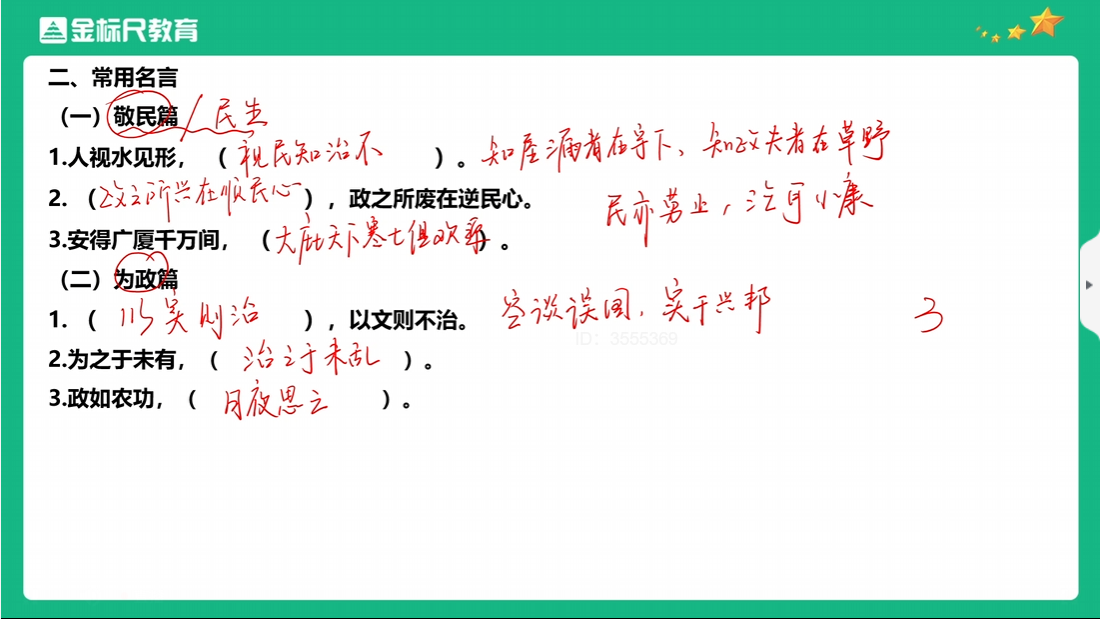 金标尺教育
二、常用名言
（一）敬民篇 / 民生
1.人视水见形，（视民知治不）。 知屋漏者在宇下、知政失者在草野
2.（政之所兴在顺民心），政之所废在逆民心。 民亦劳止，汔可小康
3.安得广厦千万间，（大庇天下寒士俱欢颜）。
（二）为政篇
1.（以实则治），以文则不治。 空谈误国，实干兴邦 3
2.为之于未有，（治之于未乱）。
3.政如农功，（日夜思之）。
ID：3555369